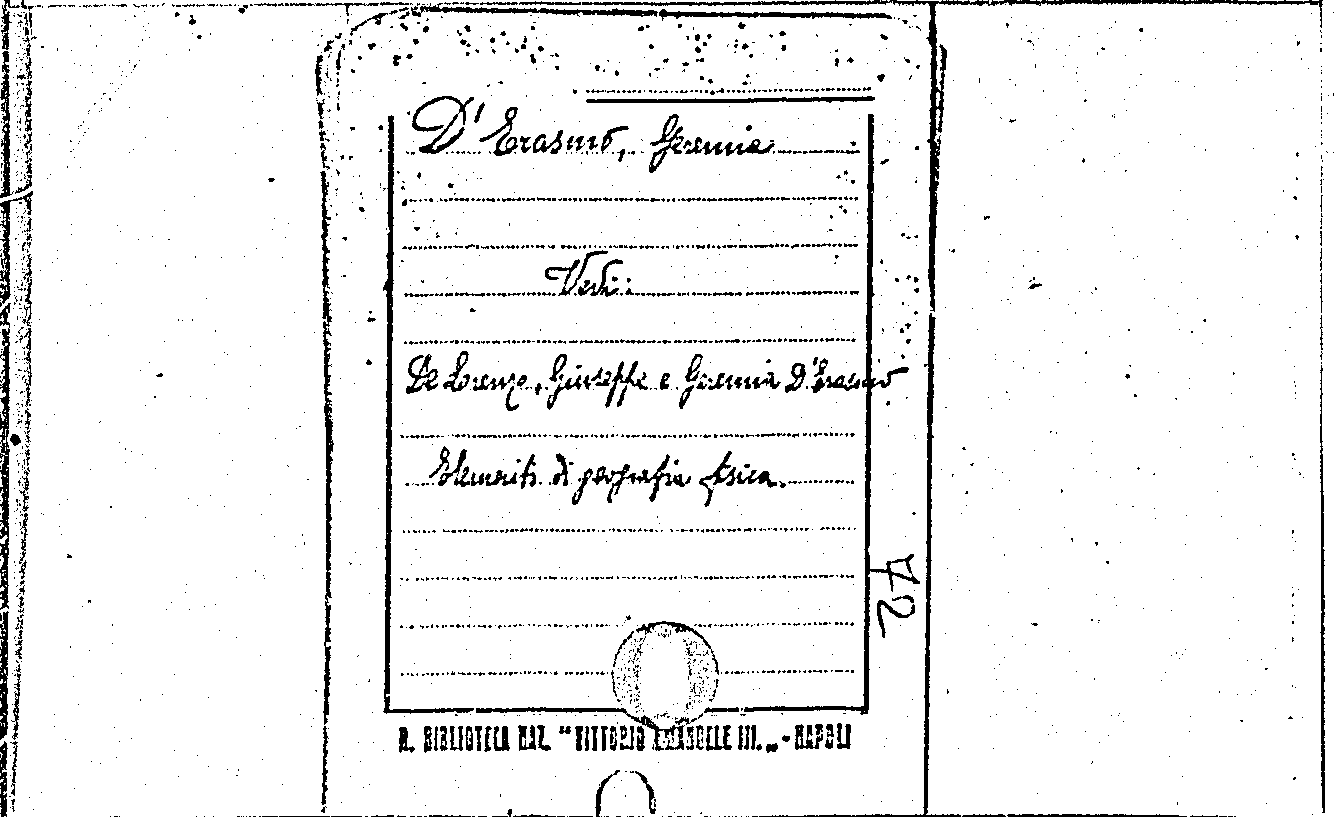 D'Erasmo, Geremia
Vedi:
De Lorenzo, Giuseppe e Geremia D'Erasmo
Elementi di geografia fisica.
72
R. BIBLIOTECA NAZ. "VITTORIO EMANUELE III." - NAPOLI